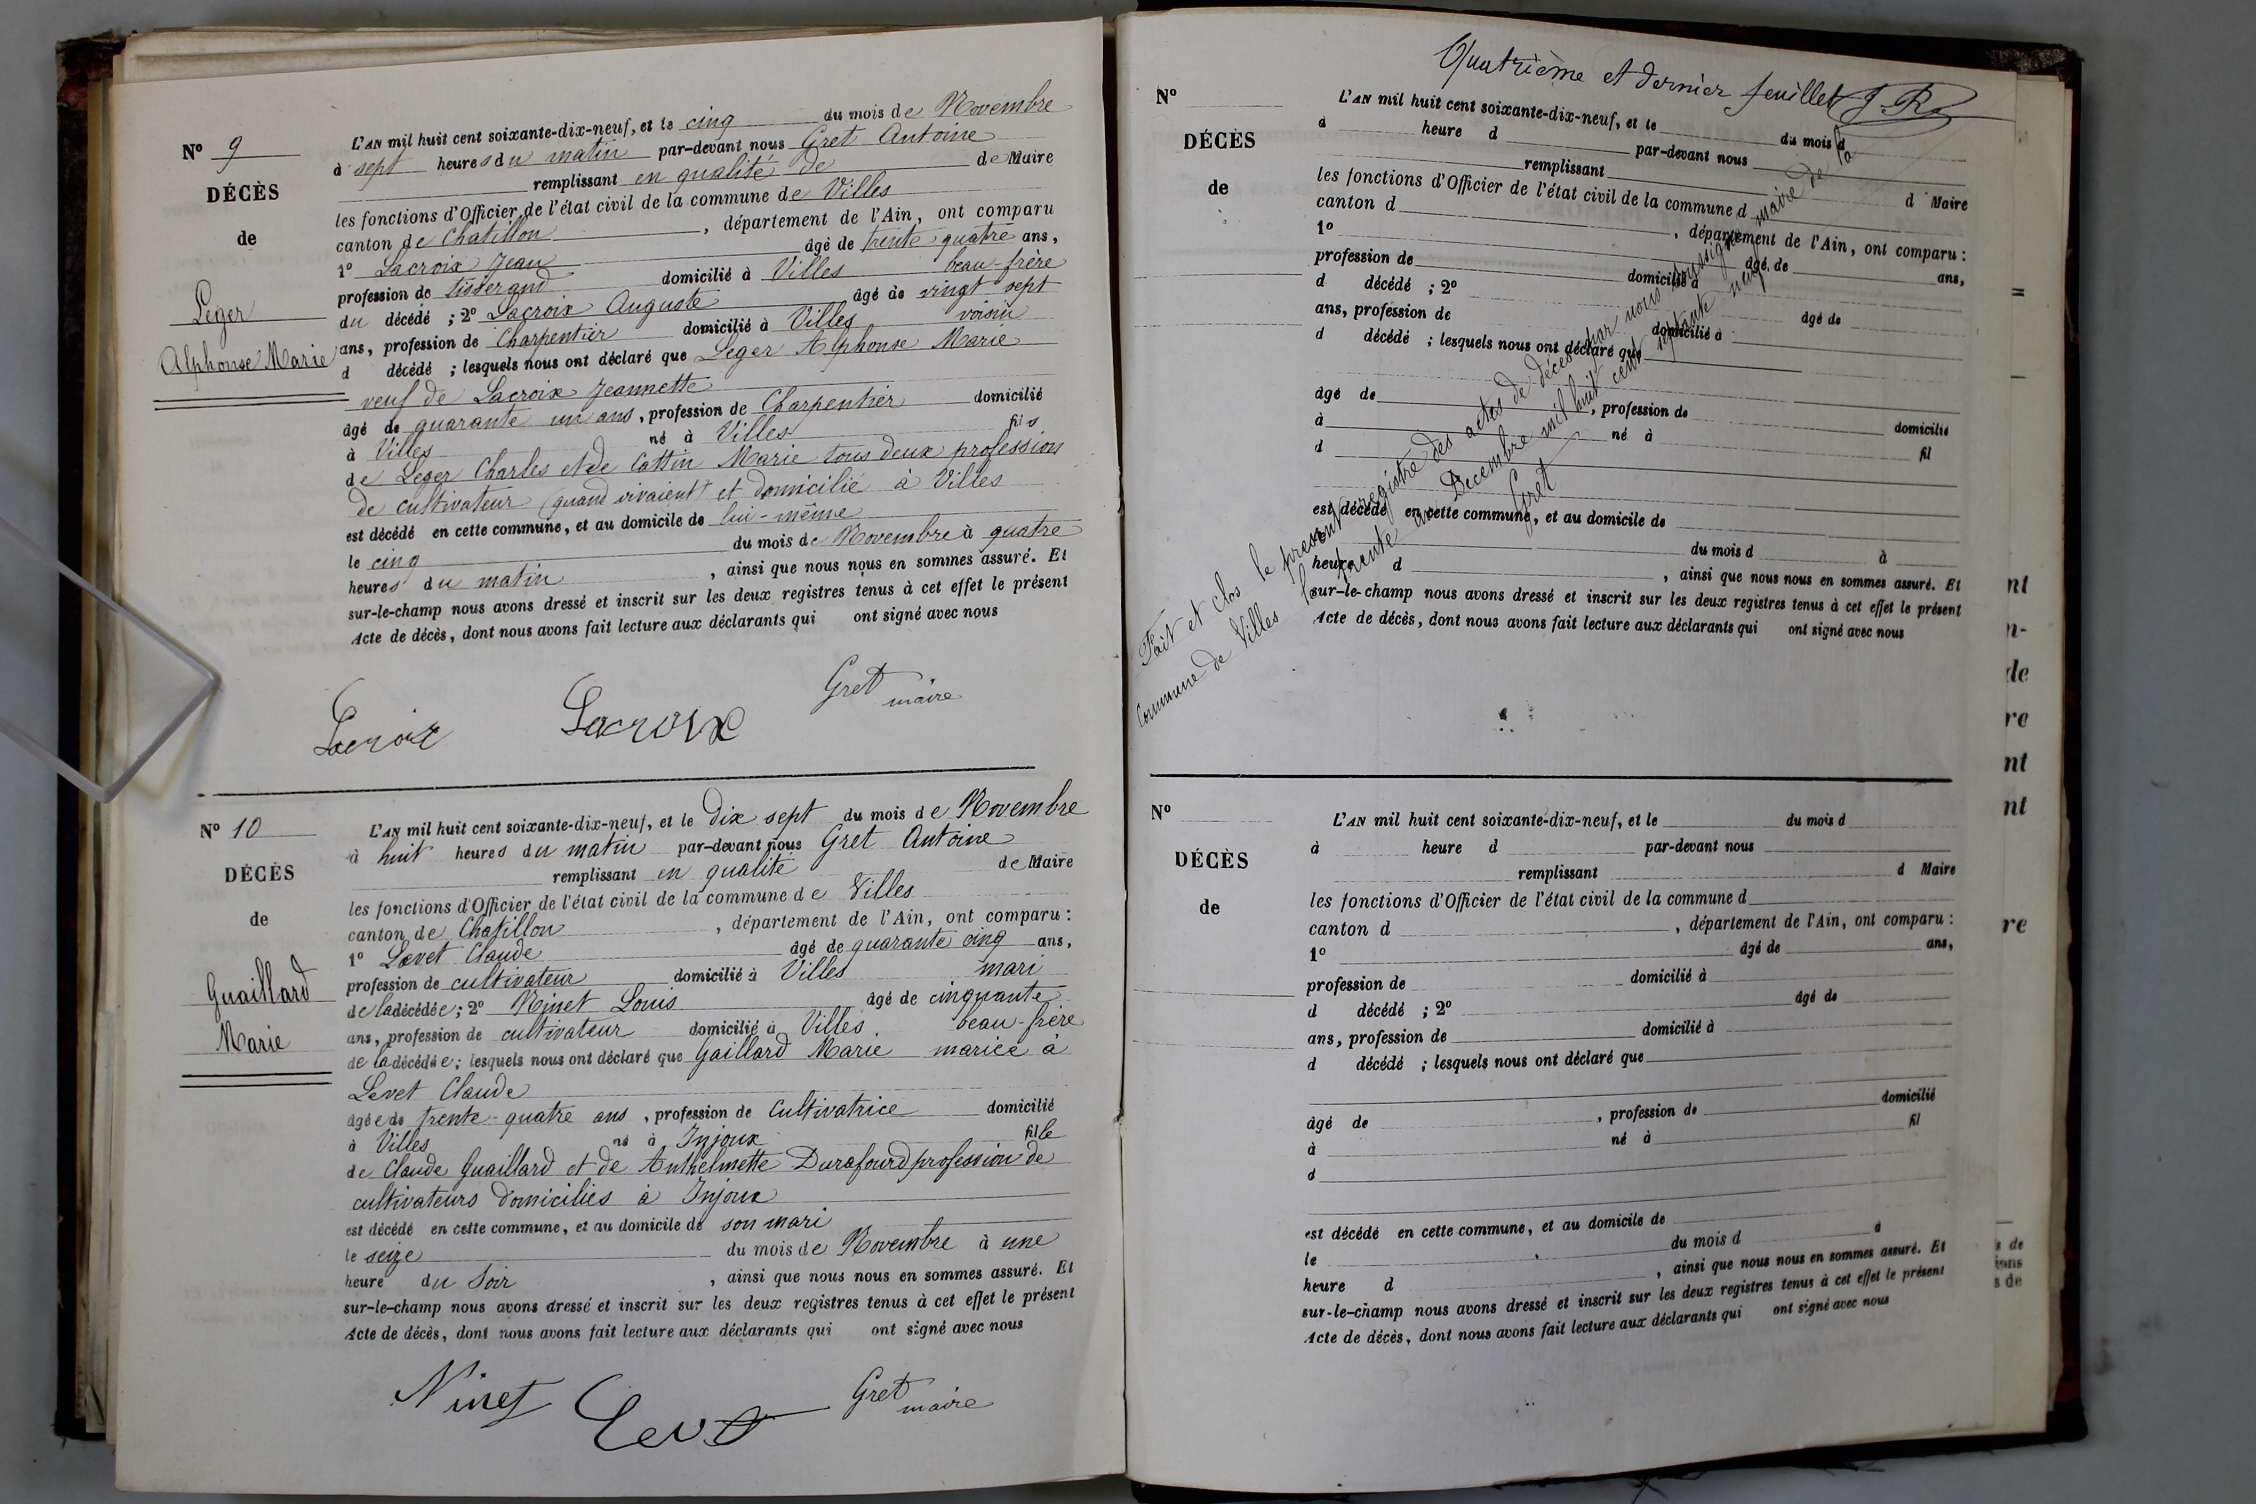 Nº 9
DÉCÈS
de
Leger
Alphonse Marie
L'AN mil huit cent soixante-dix-neuf, et le cinq du mois de Novembre
à sept heures du matin par-devant nous Gret Antoine
remplissant en qualité de de Maire
les fonctions d'Officier de l'état civil de la commune de Villes
canton de Chatillon, département de l'Ain, ont comparu
1º Lacroix Jean âgé de trente quatre ans,
profession de tisserand domicilié à Villes beau-frère
du décédé ; 2º Lacroix Auguste âgé de vingt sept
ans, profession de Charpentier domicilié à Villes voisin
d décédé ; lesquels nous ont déclaré que Leger Alphonse Marie
veuf de Lacroix Jeannette
âgé de quarante un ans, profession de Charpentier domicilié
à Villes né à Villes fils
de Leger Charles et de Cottin Marie tous deux profession
de cultivateur (quand vivaient) et domicilié à Villes
est décédé en cette commune, et au domicile de lui-même
le cinq du mois de Novembre à quatre
heures du matin, ainsi que nous nous en sommes assuré. Et
sur-le-champ nous avons dressé et inscrit sur les deux registres tenus à cet effet le présent
Acte de décès, dont nous avons fait lecture aux déclarants qui ont signé avec nous
Lacroix Lacroix Gret
maire
Nº 10
DÉCÈS
de
Guaillard
Marie
L'AN mil huit cent soixante-dix-neuf, et le dix sept du mois de Novembre
à huit heures du matin par-devant nous Gret Antoine
remplissant en qualité de Maire
les fonctions d'Officier de l'état civil de la commune de Villes
canton de Chatillon, département de l'Ain, ont comparu :
1º Levet Claude âgé de quarante cinq ans,
profession de cultivateur domicilié à Villes mari
de la décédée ; 2º Ninet Louis âgé de cinquante
ans, profession de cultivateur domicilié à Villes beau-frère
de la décédée ; lesquels nous ont déclaré que Gaillard Marie mariée à
Levet Claude
âgée de trente-quatre ans, profession de Cultivatrice domicilié
à Villes né à Injoux fille
de Claude Guaillard et de Anthelmette Durafourd profession de
cultivateurs domiciliés à Injoux
est décédé en cette commune, et au domicile de son mari
le seize du mois de Novembre à une
heure du soir, ainsi que nous nous en sommes assuré. Et
sur-le-champ nous avons dressé et inscrit sur les deux registres tenus à cet effet le présent
Acte de décès, dont nous avons fait lecture aux déclarants qui ont signé avec nous
Ninet Levet Gret
maire
Quatrième et dernier feuillet J. R.
Nº
DÉCÈS
de
L'AN mil huit cent soixante-dix-neuf, et le du mois d
à heure d par-devant nous
remplissant d Maire
les fonctions d'Officier de l'état civil de la commune d
canton d , département de l'Ain, ont comparu :
1º âgé de ans,
profession de domicilié à
d décédé ; 2º âgé de
ans, profession de domicilié à
d décédé ; lesquels nous ont déclaré que
âgé de , profession de domicilié
à né à fil
d
est décédé en cette commune, et au domicile de
du mois d à
heure d , ainsi que nous nous en sommes assuré. Et
sur-le-champ nous avons dressé et inscrit sur les deux registres tenus à cet effet le présent
Acte de décès, dont nous avons fait lecture aux déclarants qui ont signé avec nous
Fait et clos le present registre des actes de décès par nous soussigné maire de la
commune de Villes le trente un Decembre mil huit cent septante neuf
Gret
Nº
DÉCÈS
de
L'AN mil huit cent soixante-dix-neuf, et le du mois d
à heure d par-devant nous
remplissant d Maire
les fonctions d'Officier de l'état civil de la commune d
canton d , département de l'Ain, ont comparu :
1º âgé de ans,
profession de domicilié à
d décédé ; 2º âgé de
ans, profession de domicilié à
d décédé ; lesquels nous ont déclaré que
âgé de , profession de domicilié
à né à fil
d
est décédé en cette commune, et au domicile de
le du mois d à
heure d , ainsi que nous nous en sommes assuré. Et
sur-le-champ nous avons dressé et inscrit sur les deux registres tenus à cet effet le présent
Acte de décès, dont nous avons fait lecture aux déclarants qui ont signé avec nous